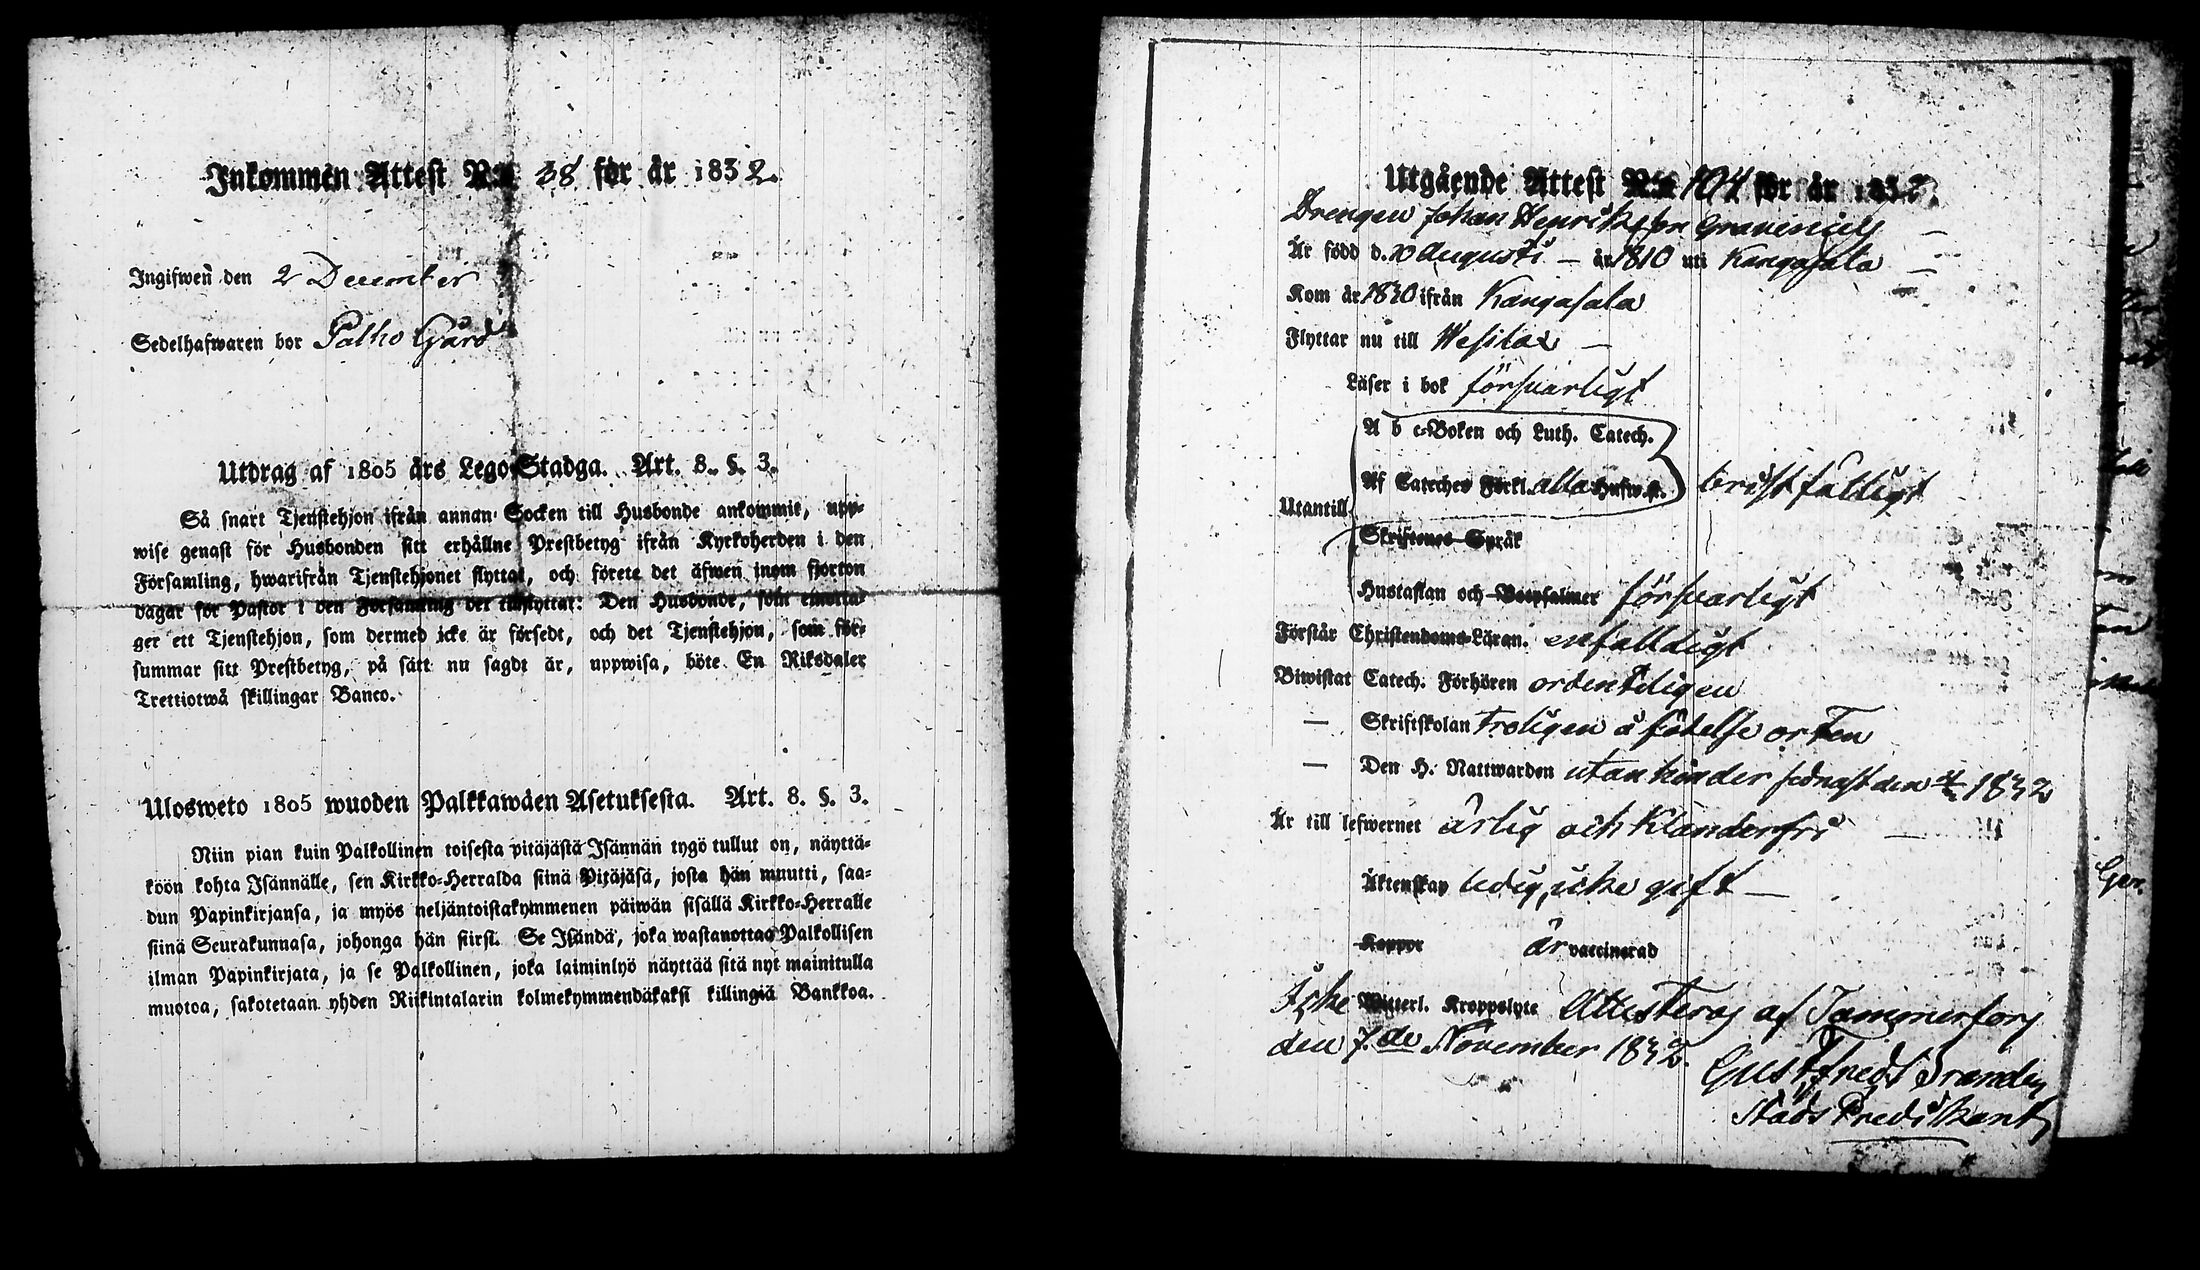 Inkommen Attest N:o 38 för år 1832.
Ingifwen den 2 December
Sedelhafwaren bor Palho Gård
Utdrag af 1805 års Lego-Stadga. Art. 8. §. 3.
Så snart Tjenstehjon ifrån annan Socken till Husbonde ankommit, upp-
wise genast för Husbonden sitt erhållne Prestbetyg ifrån Kyrkoherden i den
Församling, hwarifrån Tjenstehjonet flyttat, och förete det äfwen inom fjorton
dagar för Pastor i den Församling det tillflyttat: Den Husbonde, som emotta-
ger ett Tjenstehjon, som dermed icke är försedt, och det Tjenstehjon, som för-
summar sitt Prestbetyg, på sätt nu sagdt är, uppwisa, böte En Riksdaler
Trettiotwå skillingar Banco.
Ulosweto 1805 wuoden Palkkawäen Asetuksesta. Art. 8. §. 3.
Niin pian kuin Palkollinen toisesta pitäjästä Isännän tygö tullut on, näyttä-
köön kohta Isännälle, sen Kirkko-Herralda siinä Pitäjäsä, josta hän muutti, saa-
dun Papinkirjansa, ja myös neljäntoistakymmenen päiwän sisällä Kirkko-Herralle
siinä Seurakunnasa, johonga hän siirsi. Se Isändä, joka wastanottaa Palkollisen
ilman Papinkirjata, ja se Palkollinen, joka laiminlyö näyttää sitä nyt mainitulla
muotoa, sakotetaan yhden Riikintalarin kolmekymmendäkaksi killingiä Bankkoa.
Utgående Attest N:o 104 för år 1832.
Drengen Johan Henriksson Gravenius
Är född d. 20 Augusti år 1810 uti Kangasala
Kom år 1830 ifrån Kangasala
Flyttar nu till Wesilax
Läser i bok försvarligt
A b c-Boken och Luth. Catech.
Af Cateches Förkl. alla Hufw.st. bristfälligt
Utantill
Skriftenes Språk
Hustaflan och Botpsalmer försvarligt
Förstår Christendoms-Läran. enfalldigt
Biwistat Catech. Förhören ordenteligen
— Skriftskolan troligen å födelse orten
— Den H. Nattwarden utan hinder sednast den 1832
Är till lefwernet ärlig och klanderfri
Äktenskap ledig, icke gift
Koppor är vaccinerad
Icke Witterl. Kroppslyte Attesteras af Tammerfors
den 7.de November 1832.
Gust Fredr Brandey
Stads Predikant